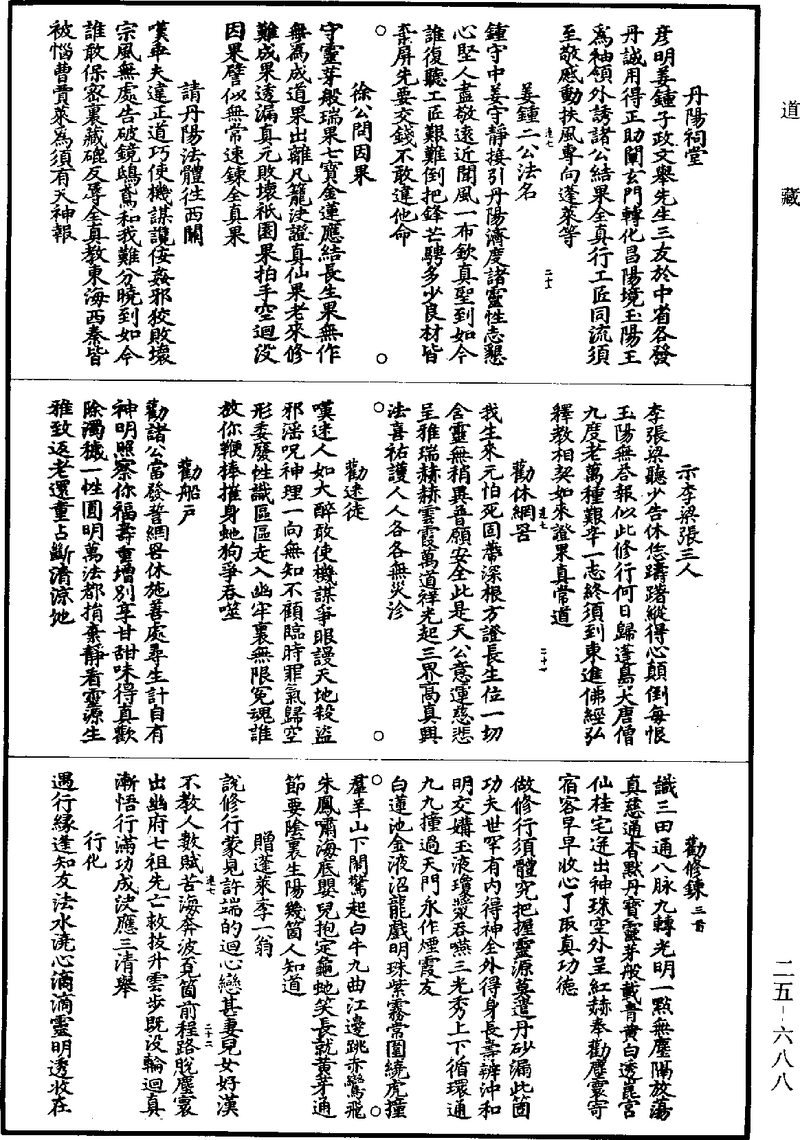 道藏
丹陽祠堂
彦明姜鍾子政文舉先生三友於中省各發
丹誠用得正助闡玄門轉化昌陽境玉陽王
爲袖領外誘諸公結果全真行工匠同流須
至敬感動扶風專向蓬萊等
姜鍾二公法名
鍾守中姜守靜接引丹陽濟度諸靈性志懇
心堅人盡敬遠近聞風一布欽真聖到如今
誰復聽工匠艱難倒把鋒芒騁多少良材皆
棄屏先要交錢不敢違他命
徐公問因果
守靈芽般瑞果七寶金蓮應結長生果無作
無爲成道果出離凡籠決證真仙果老來修
難成果透漏真元敗壞祇園果拍手空迴没
因果譬似無常速鍊全真果
請丹陽法體往西關
嘆車夫違正道巧使機謀讒佞姦邪狡敗壞
宗風無處告破鏡鴟鳶和我難分曉到如今
誰敢保密裏藏磇反辱全真教東海西秦皆
被惱曹賈萊爲須有天神報
示李梁張三人
李張梁聽少告休恁躊躇縱得心顛倒每恨
玉陽無荅報似此修行何日歸蓬島大唐僧
九度老萬種艱辛一志終須到東進佛經弘
釋教相契如來證果真常道
勸休網罟
我生來元怕死固蔕深根方證長生位一切
含靈無稍異普願安全此是天公意運慈悲
呈雅瑞赫赫雲霞萬道祥光起三界高真興
法喜祐護人人各各無災沴
勸迷徒
嘆迷人如大醉敢使機謀爭眼謾天地殺盜
邪滛呪神理一向無知不顧臨時罪氣歸空
形委廢性識區區走入幽牢裏無限冤魂誰
放你鞭棒摧身虵狗爭吞噬
勸船戶
勸諸公當發誓網罟休施善處尋生計自有
神明照察你福壽重增别享甘甜味得真歡
除濁穢一性圓明萬法都捐棄靜看靈源生
雅致返老還童占斷清涼地
勸修鍊三首
識三田通八脉九轉光明一點無塵隔放蕩
真慈通杳默丹寶靈芽般載青黄白透崑宫
仙桂宅迸出神珠空外呈紅赫奉勸塵寰寄
宿客早早收心了取真功德
做修行須體究把握靈源莫遣丹砂漏此箇
功夫世罕有内得神全外得身長壽辨沖和
明交媾玉液瓊漿吞嚥三光秀上下循環通
九九撞過天門永作煙霞友
白蓮池金液沼龍戲明珠紫霧常圍繞虎撞
羣羊山下閙驚起白牛九曲江邊跳赤鸞飛
朱鳳嘯海底嬰兒抱定龜虵笑長就黄芽通
節要陰裏生陽幾箇人知道
贈蓬萊李一翁
說修行蒙見許端的迴心戀甚妻兒女好漢
不教人數賦苦海奔波覓箇前程路脫塵寰
出幽府七祖先亡救拔升雲步既没輪迴真
漸悟行滿功成決應三清舉
行化
遇行緣逢知友法水澆心滴滴靈明透收在
二五-六八八